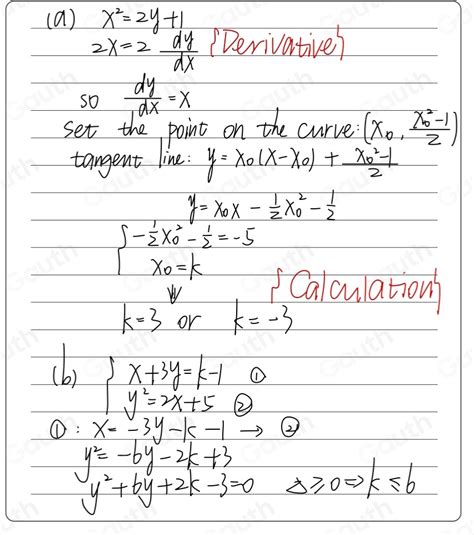 (a) x²=2y+1
2x=2 dy/dx {Derivative}
so dy/dx = x
set the point on the curve: (x₀, (x₀²-1)/2)
tangent line: y = x₀(x-x₀) + (x₀²-1)/2
y = x₀x - ½x₀² - ½
{ -½x₀² - ½ = -5
x₀ = k
⇓ {Calculation}
k=3 or k=-3
(b) { x+3y=k-1 ①
y²=2x+5 ②
①: x = -3y-k-1 → ②
y² = -6y-2k+3
y²+6y+2k-3=0 △≥0⇒k≤6